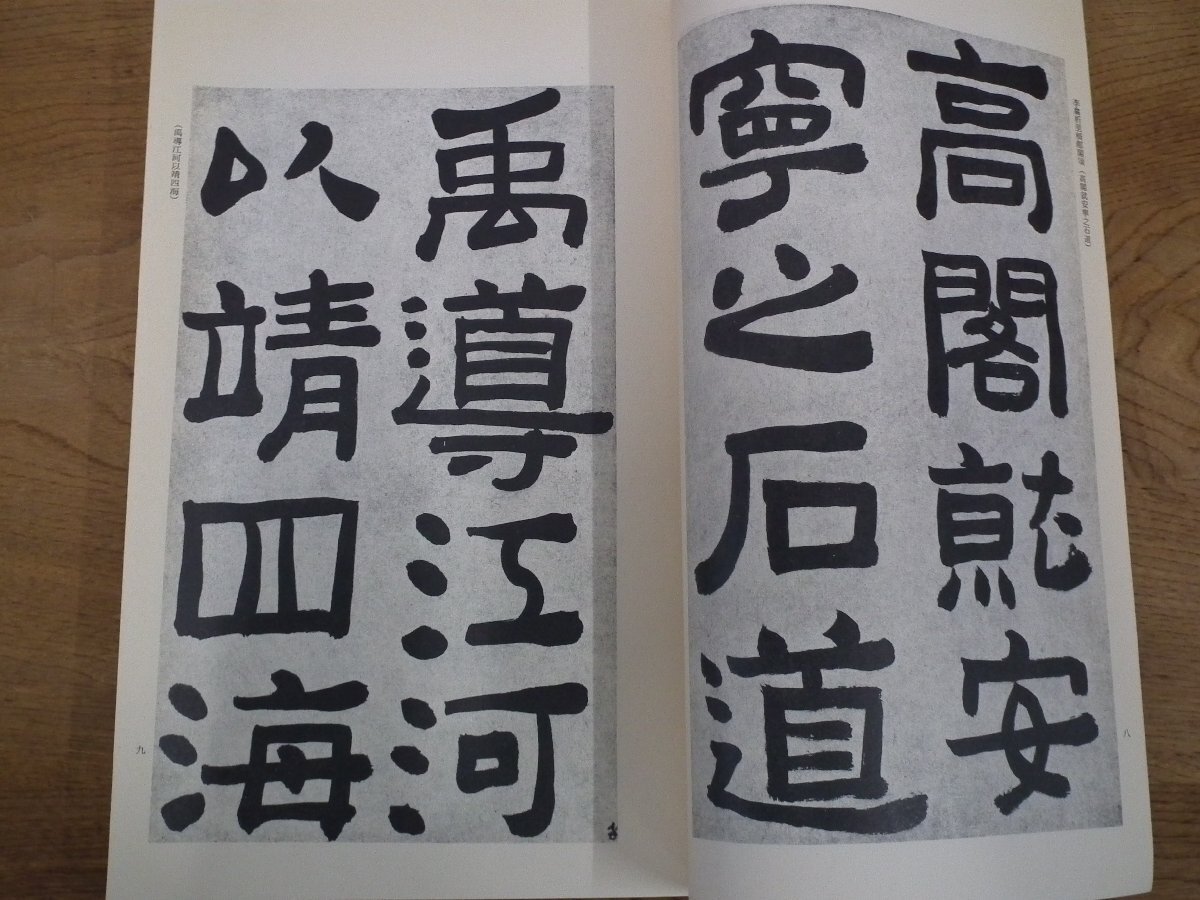 李翕析里橋郙閣頌（高閣就安寧之石道）
八
高閣就安
寧之石道
禹導江河
以靖四海
（禹導江河以靖四海）
九